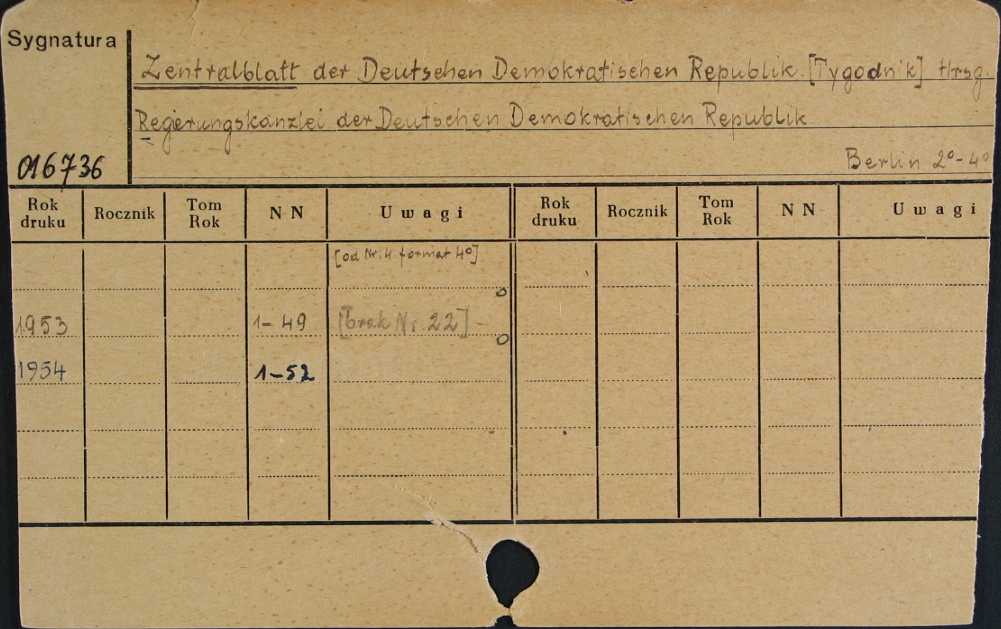 Sygnatura
Zentralblatt der Deutschen Demokratischen Republik. [Tygodnik] Hrsg.
Regierungskanzlei der Deutschen Demokratischen Republik
016736
Berlin 2°-4°
Rok druku Rocznik Tom Rok N N Uwagi Rok druku Rocznik Tom Rok N N Uwagi
[od Nr. 4 format 4°]
1953 1-49 [brak Nr 22]
1954 1-52